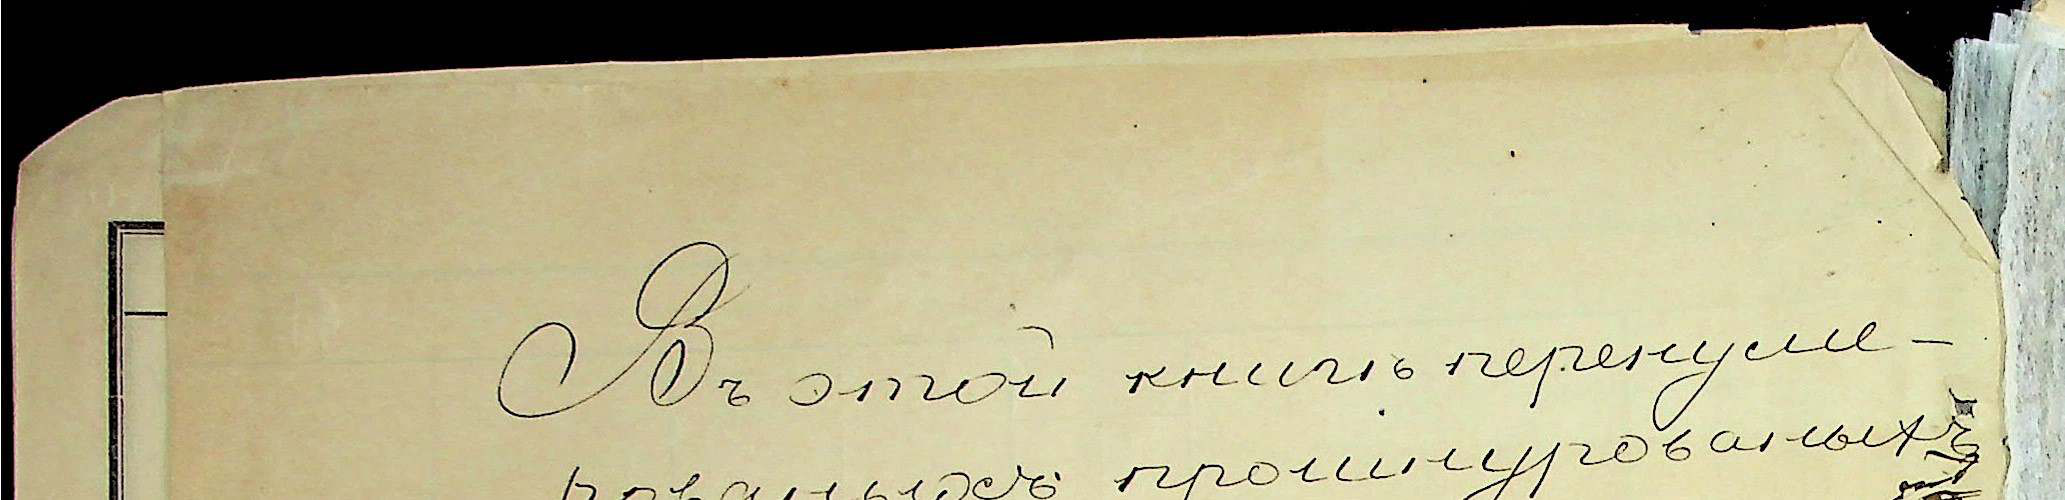 Въ этой книгѣ перенуме-
рованыхъ прошнурованыхъ